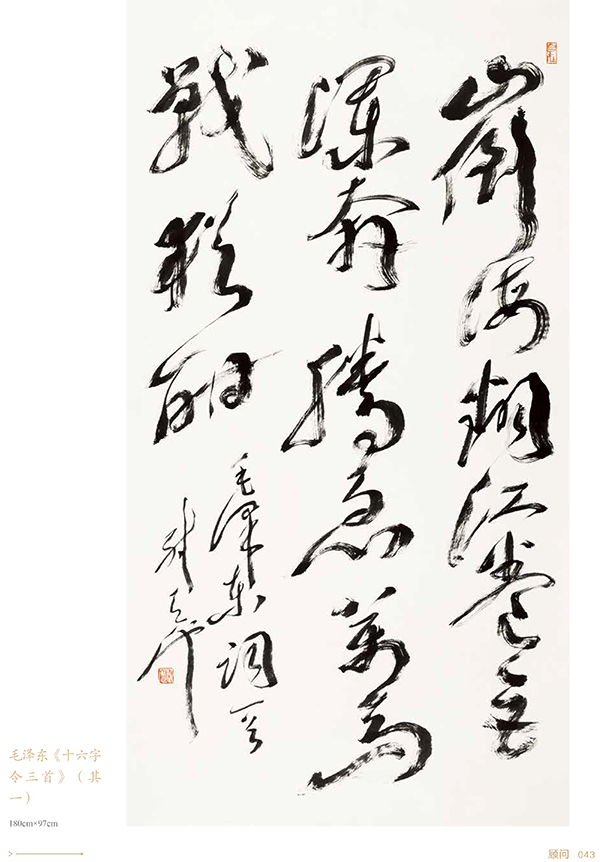 山倒海翻江卷巨
瀾奔騰急萬馬
戰猶酣
毛澤東詞一首
毛泽东《十六字
令三首》（其
一）
180cm×97cm
顾问 043